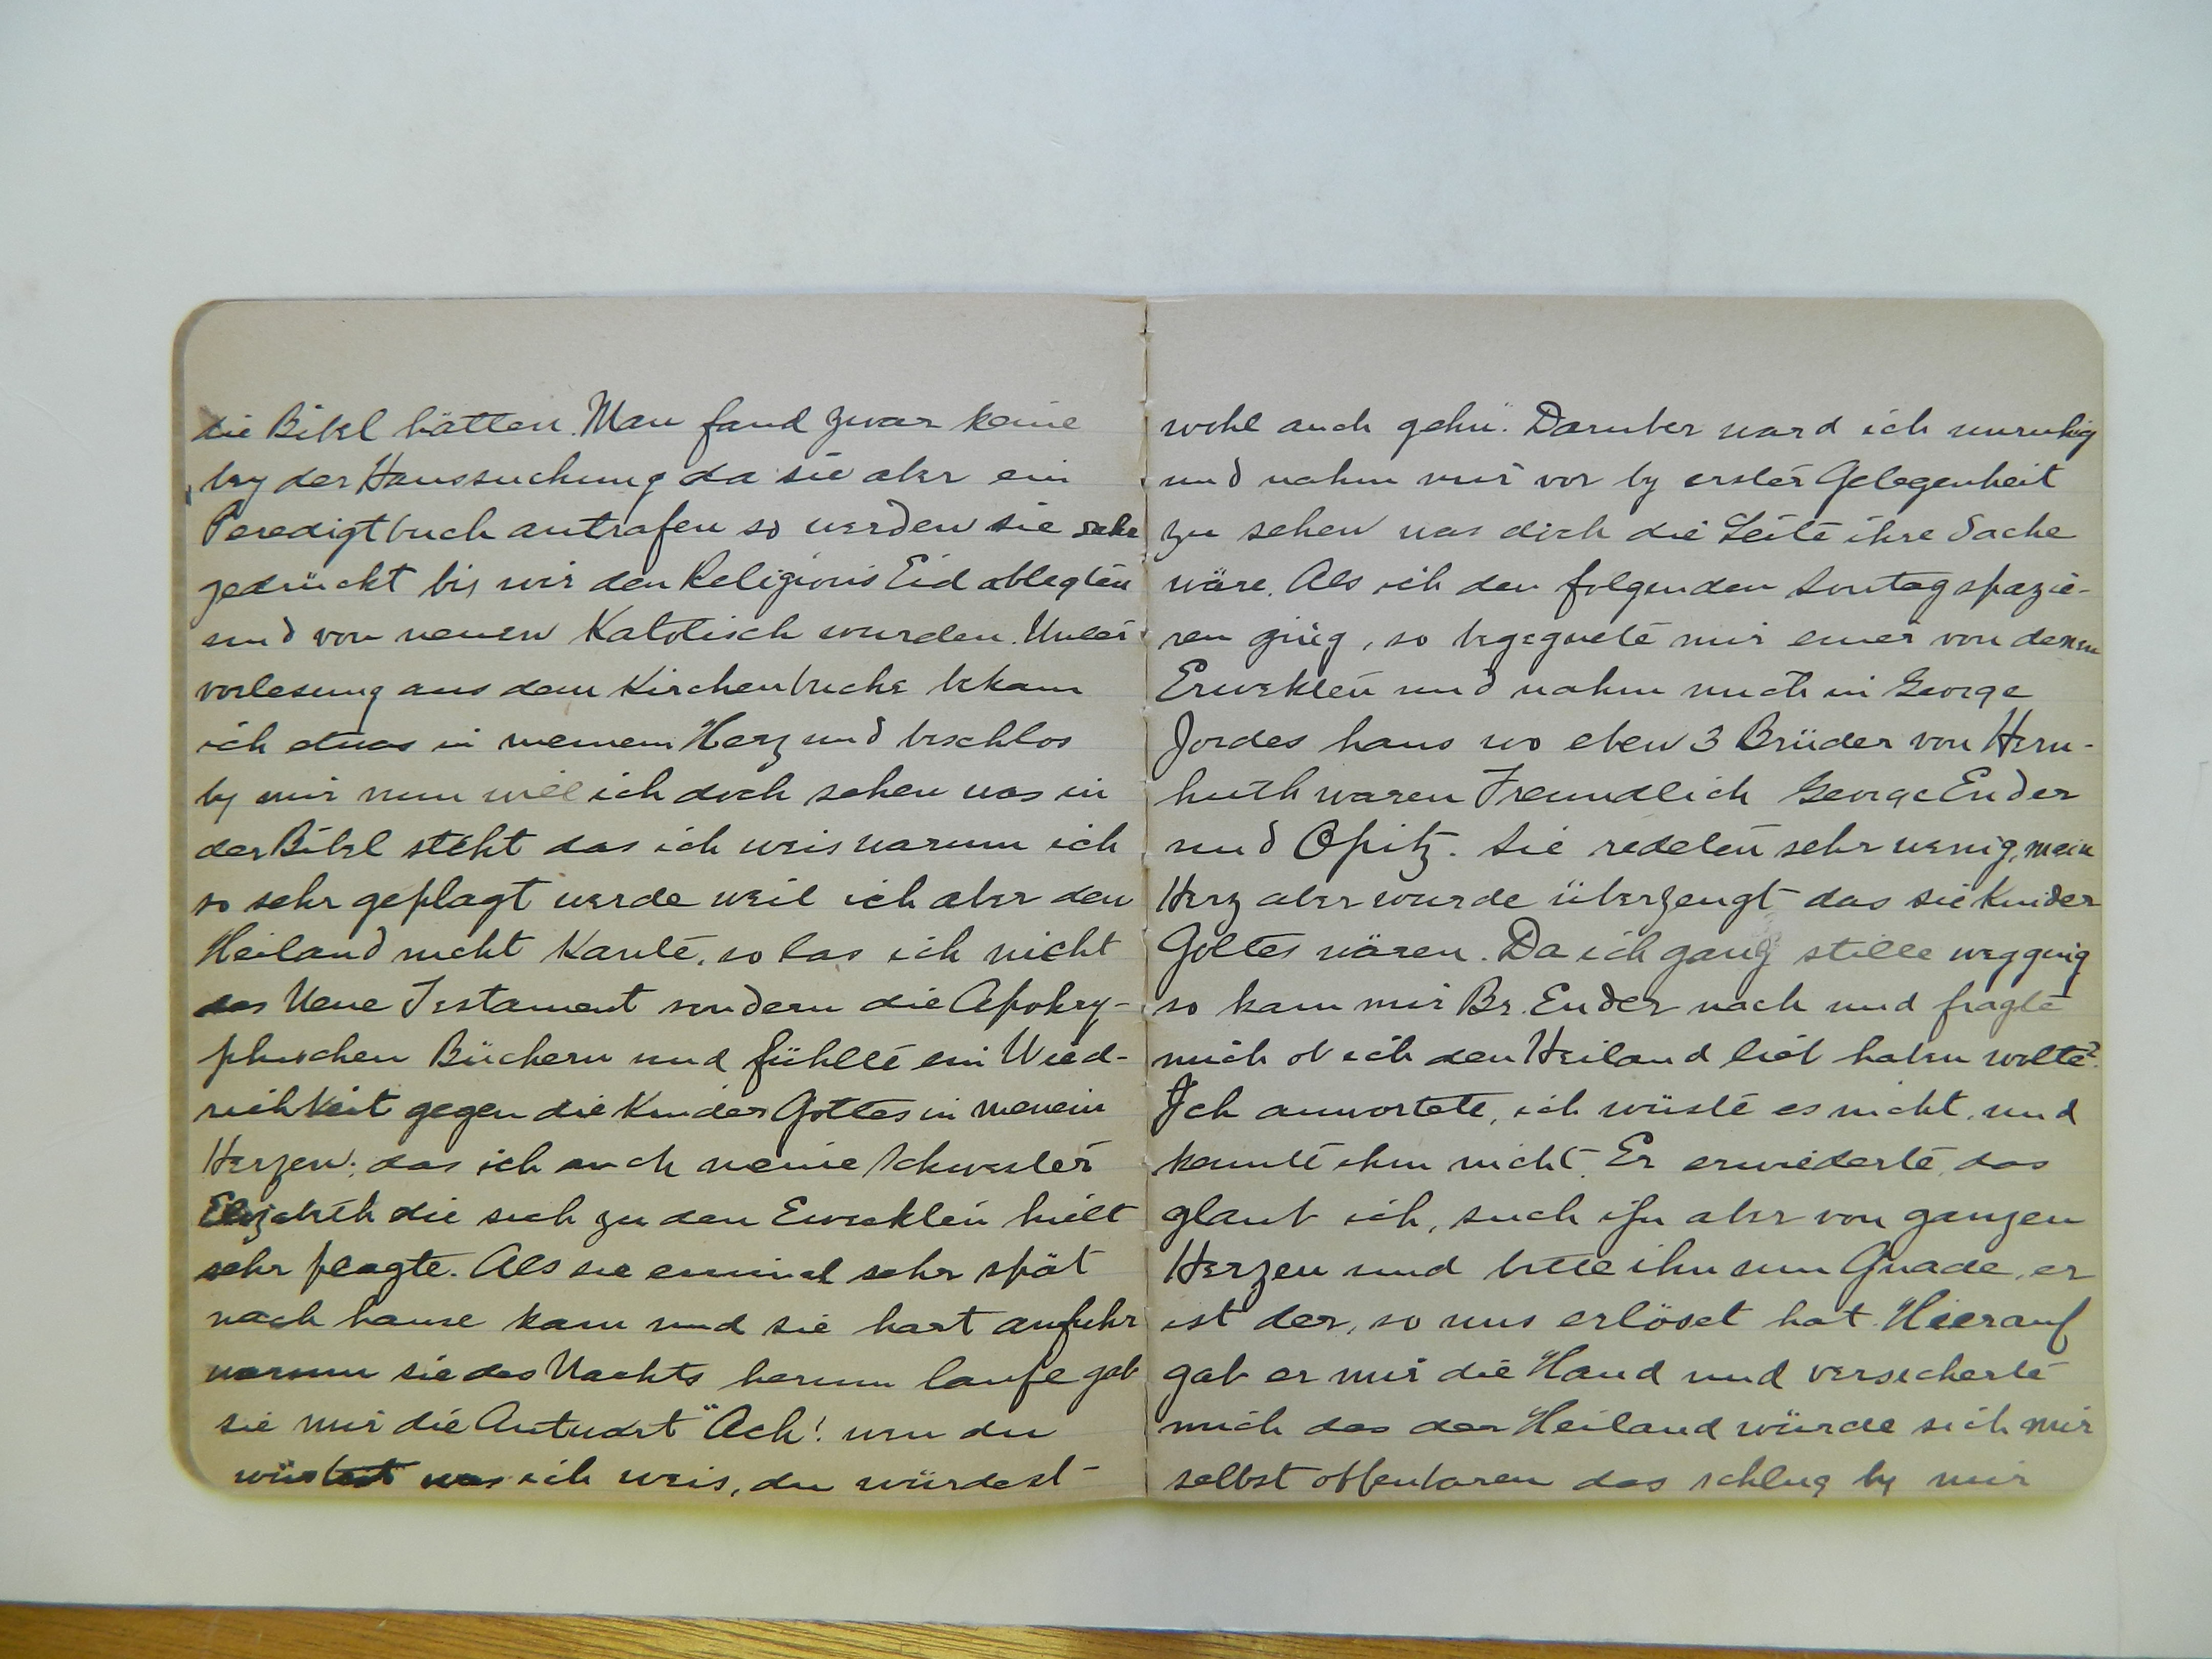 die Bibel hätten. Man fand zwar keine
bey der Haussuchung da sie aber ein
Peredigtbuch antrafen so werden sie sehr
gedrückt bis wir den Religions Eid ablegten
und von neuen Katolisch wurden. Unter
vorlesung aus dem Kirchenbuche bekam
ich etwas in meinem Herz und beschlos
by mir nun will ich doch sehen was in
der Bibel steht das ich weis warum ich
so sehr geplagt werde weil ich aber den
Heiland nicht Kante, so las ich nicht
das Neue Testament sondern die Apokry-
phischen Büchern und fühlte ein Wied-
richkeit gegen die Kinder Gottes in meinem
Herzen; das ich auch meine Schwester
Elizabeth die sich zu den Erweckten hielt
sehr plagte. Als sie einmal sehr spät
nach hause kam und sie hart anfuhr
warum sie das Nachts herum laufe gab
sie mir die Antwort "Ach! wen du
wüstest was ich weis, du würdest
wohl auch gehn". Daruber ward ich unruhig
und nahm mir vor by erster Gelegenheit
zu sehen was doch die Leite ihre Sache
wäre. Als ich den folgenden Sontag spazie-
ren ging, so begegnete mir einer von denen
Erwekten und nahm mich in George
Jordes haus wo eben 3 Brüder von Hern-
huth waren Freundlich George Ender
und Opitz. Sie redeten sehr wenig, mein
Herz aber wurde überzeugt das sie Kinder
Gottes wären. Da ich ganz stille wegging
so kam mir Br. Ender nach und fragte
mich ob ich den Heiland lieb haben wolte?
Ich anwortete, ich wüste es nicht, und
kennte ihm nicht. Er erwiederte, das
glaub ich, such ihn aber von ganzen
Herzen und bitte ihn um Gnade, er
ist der, so uns erlöset hat. Hierauf
gab er mir die Hand und versicherte
mich das der Heiland würde sich mir
selbst offenbaren das schlug by mir